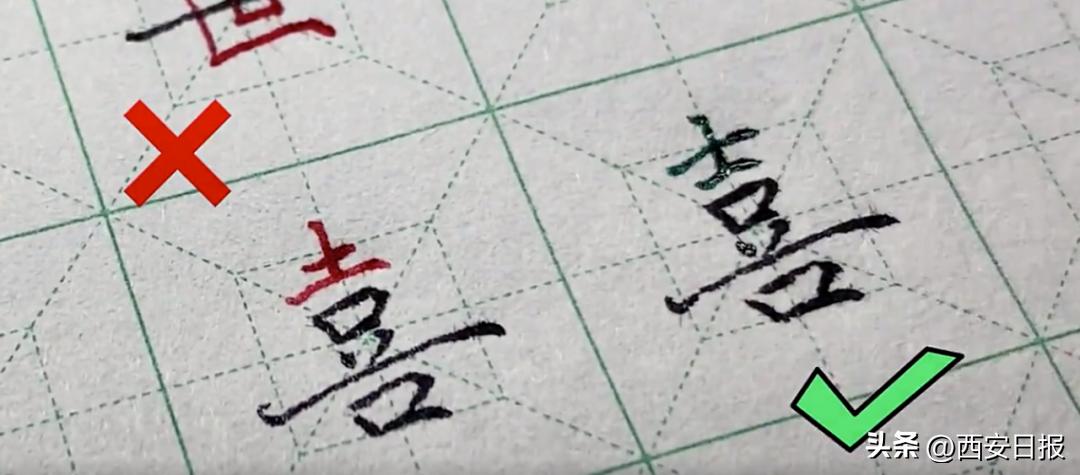 喜 喜
头条 @西安日报